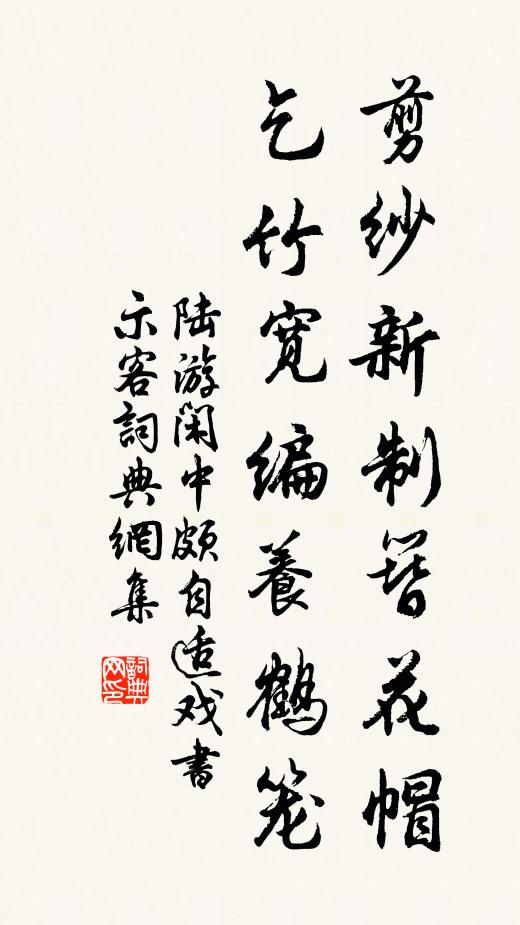 剪纱新制簪花帽
乞竹宽编养鹤笼
陆游闲中颇自适戏书
示客詞典網集
詞典网印